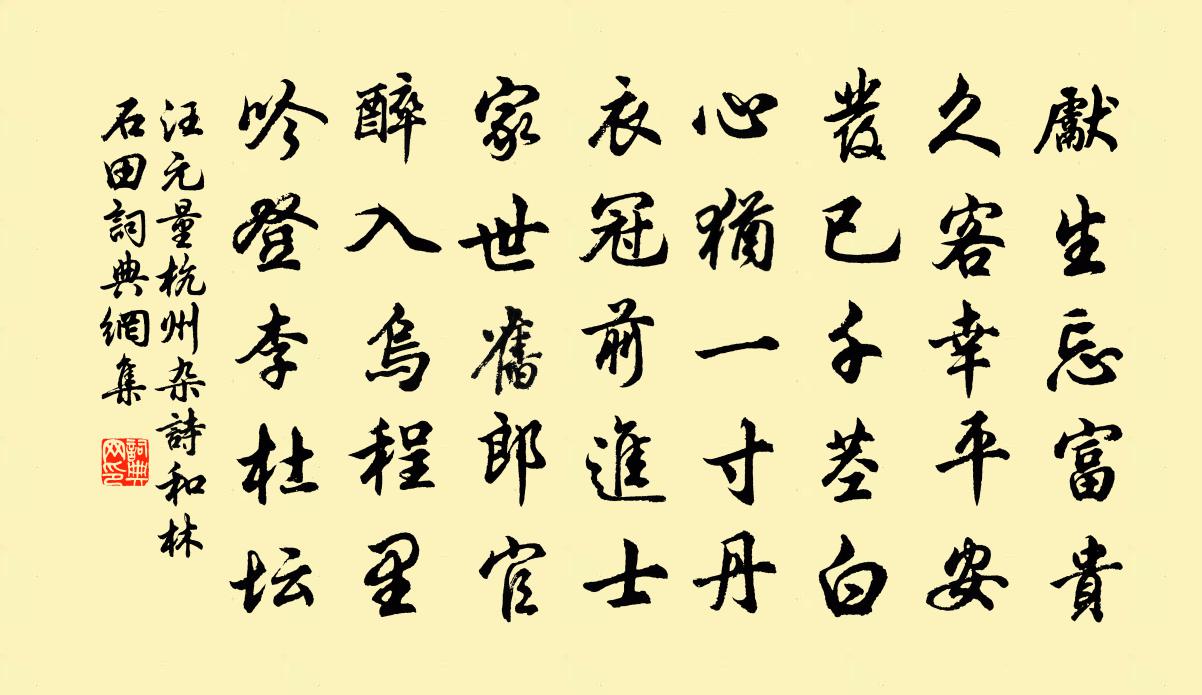 獻生忘富貴
久客幸平安
發已千茎白
心猶一寸丹
衣冠前進士
家世舊郎官
醉入烏程里
吟登李杜坛
汪元量杭州杂詩和林
石田詞典網集
詞典网印